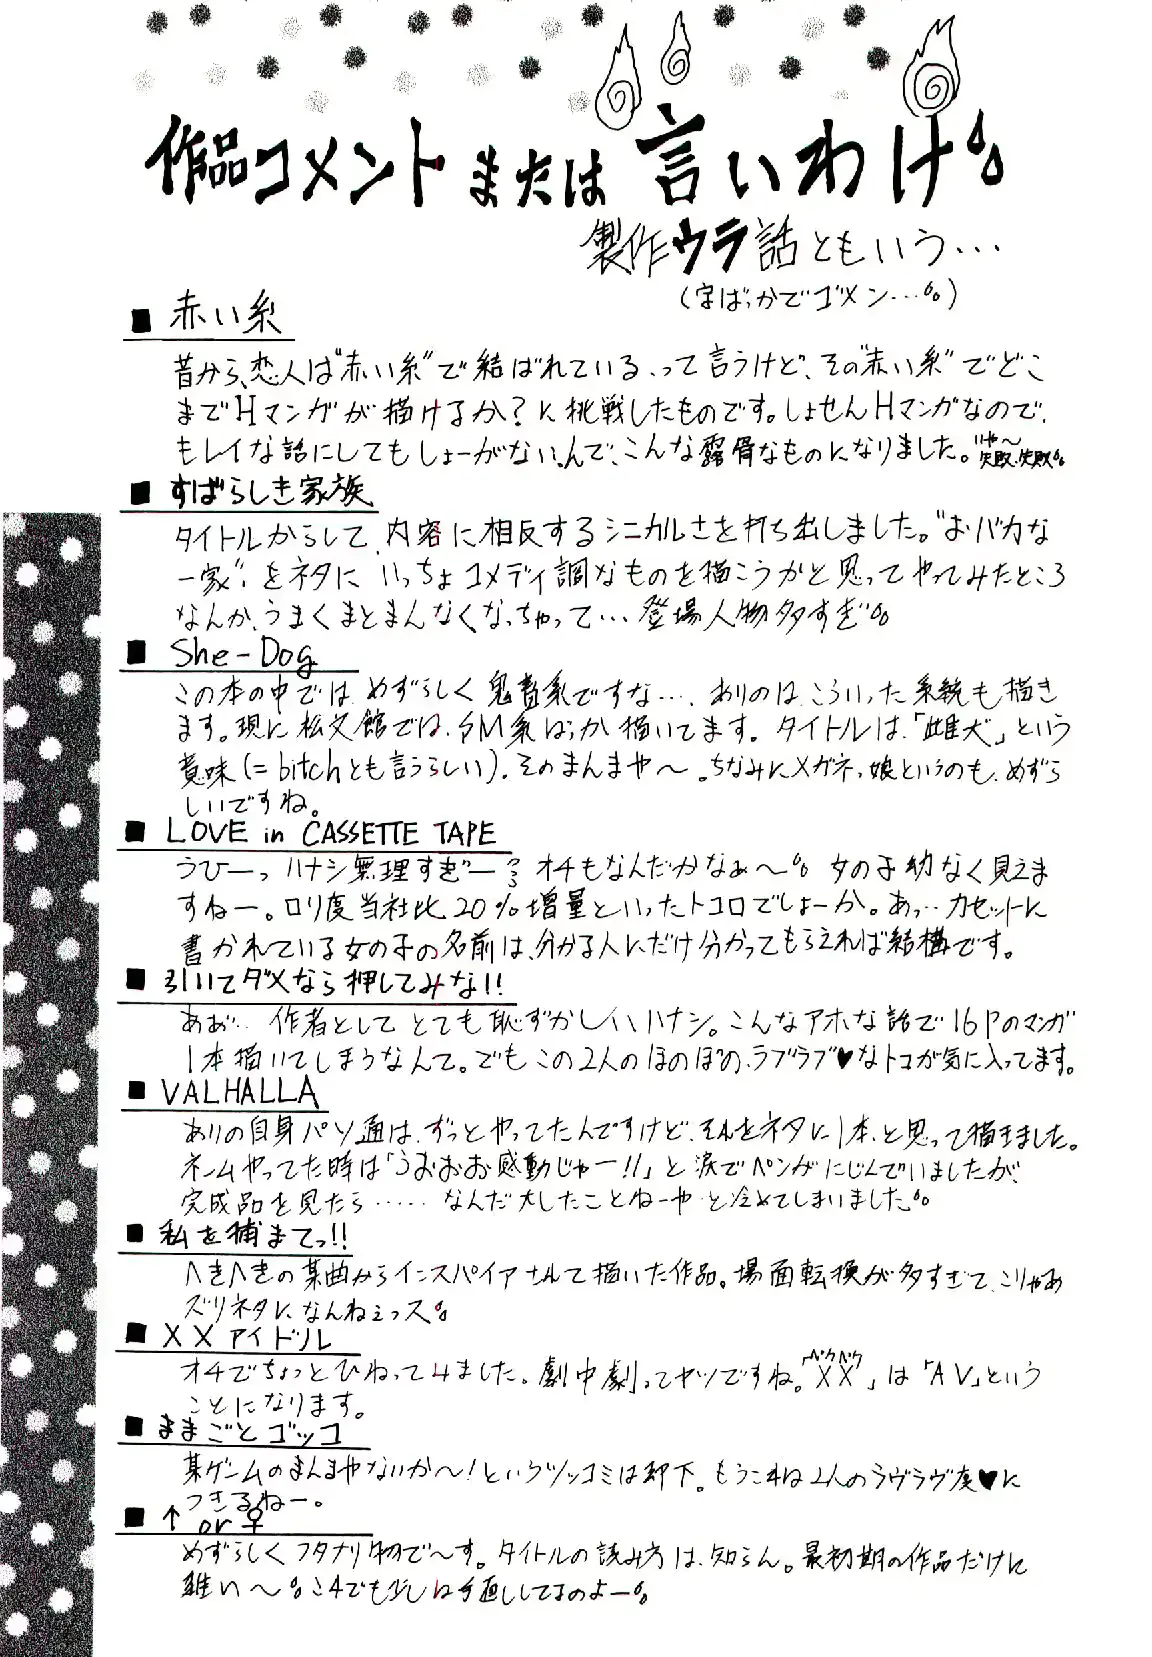 作品コメントまたは言いわけ
製作ウラ話ともいう…
(字ばっかでゴメン…)
■ 赤い糸
昔から、恋人は"赤い糸"で結ばれている、って言うけど、その"赤い糸"でどこ
までHマンガが描けるか?に挑戦したものです。しょせんHマンガなので、
もレイな話にしてもしょーがないんで、こんな露骨なものになりました。いや〜失敗、失敗
■ すばらしき家族
タイトルからして、内容に相反するシニカルさを打ち出しました。"おバカな
一家"をネタに いっちょコメディ調なものを描こうかと思ってやってみたところ
なんか、うまくまとまんなくなっちゃって…登場人物多すぎ
■ She-Dog
この本の中では、めずらしく鬼畜系ですな…。ありのは、こういった系統も描き
ます。現に松文館では、SM系ばっか描いてます。タイトルは、「雌犬」という
意味(=bitchとも言うらしい)。そのまんまや〜。ちなみにメガネっ娘というのも、めずら
しいですね。
■ LOVE in CASSETTE TAPE
うひーっ ハナシ無理すぎー オチもなんだかなぁ〜 女の子幼なく見えま
すねー。ロリ度当社比20%増量といったトコロでしょーか。あっ…カセットに
書かれている女の子の名前は、分かる人にだけ分かってもらえれば結構です。
■ 引いてダメなら押してみな!!
あぁ… 作者として とても恥ずかしいハナシ。こんなアホな話で16Pのマンガ
1本描いてしまうなんて。でもこの2人のほのぼの、ラブラブ♥なトコが気に入ってます。
■ VALHALLA
ありの自身パソ通は、ずっとやってたんですけど、それをネタに1本、と思って描きました。
ネームやってた時は「うおおお感動じゃー!!」と涙でペンがにじんでいましたが、
完成品を見たら…… なんだ大したことねーや と冷めてしまいました。
■ 私を捕まてっ!!
ヘきヘきの某曲からインスパイアされて描いた作品。場面転換が多すぎて、こりゃあ
ズリネタに、なんねぇっス
■ XXアイドル
オチでちょっとひねってみました。劇中劇ってヤツですね。「XX」は「AV」という
ことになります。
■ ままごとゴッコ
某ゲームのまんまやないか〜!というツッコミは却下。もうこれは2人のラヴラヴ度♥に
つきるねー。
■ ↑ or ♀
めずらしくフタナリ物で〜す。タイトルの読み方は、知らん。最初期の作品だけに
雑い〜 これでも少しは手直ししてるのよー